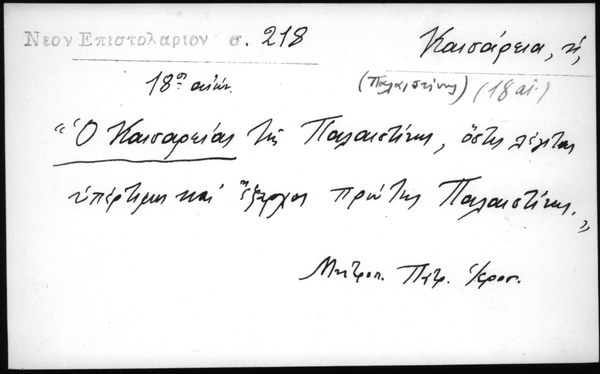 Νεον Επιστολαριον σ. 218
Καισάρεια, ἡ,
18ος αἰών.
(Παλαιστίνης) (18 αἰ.)
"Ὁ Καισαρείας τῆς Παλαιστίνης, ὅστις λέγεται
ὑπέρτιμος καὶ ἔξαρχος πρώτης Παλαιστίνης."
Μητροπ. Πατρ. Ἱεροσ.